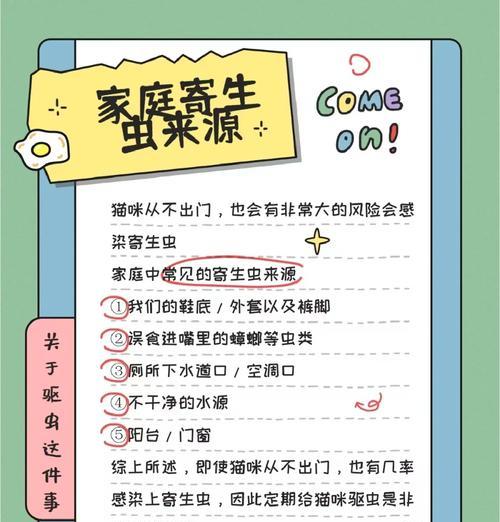 家庭寄生
虫来源
COME
ON!
猫咪从不出门，也会有非常大的风险会感
染寄生虫
家庭中常见的寄生虫来源
①我们的鞋底/外套以及裤脚
②误食进嘴里的蟑螂等虫类
③厕所下水道口/空调口
④不干净的水源
⑤阳台/门窗
综上所述，即使猫咪从不出门，也有几率
感染上寄生虫，因此定期给猫咪驱虫是非
关于驱虫这件事